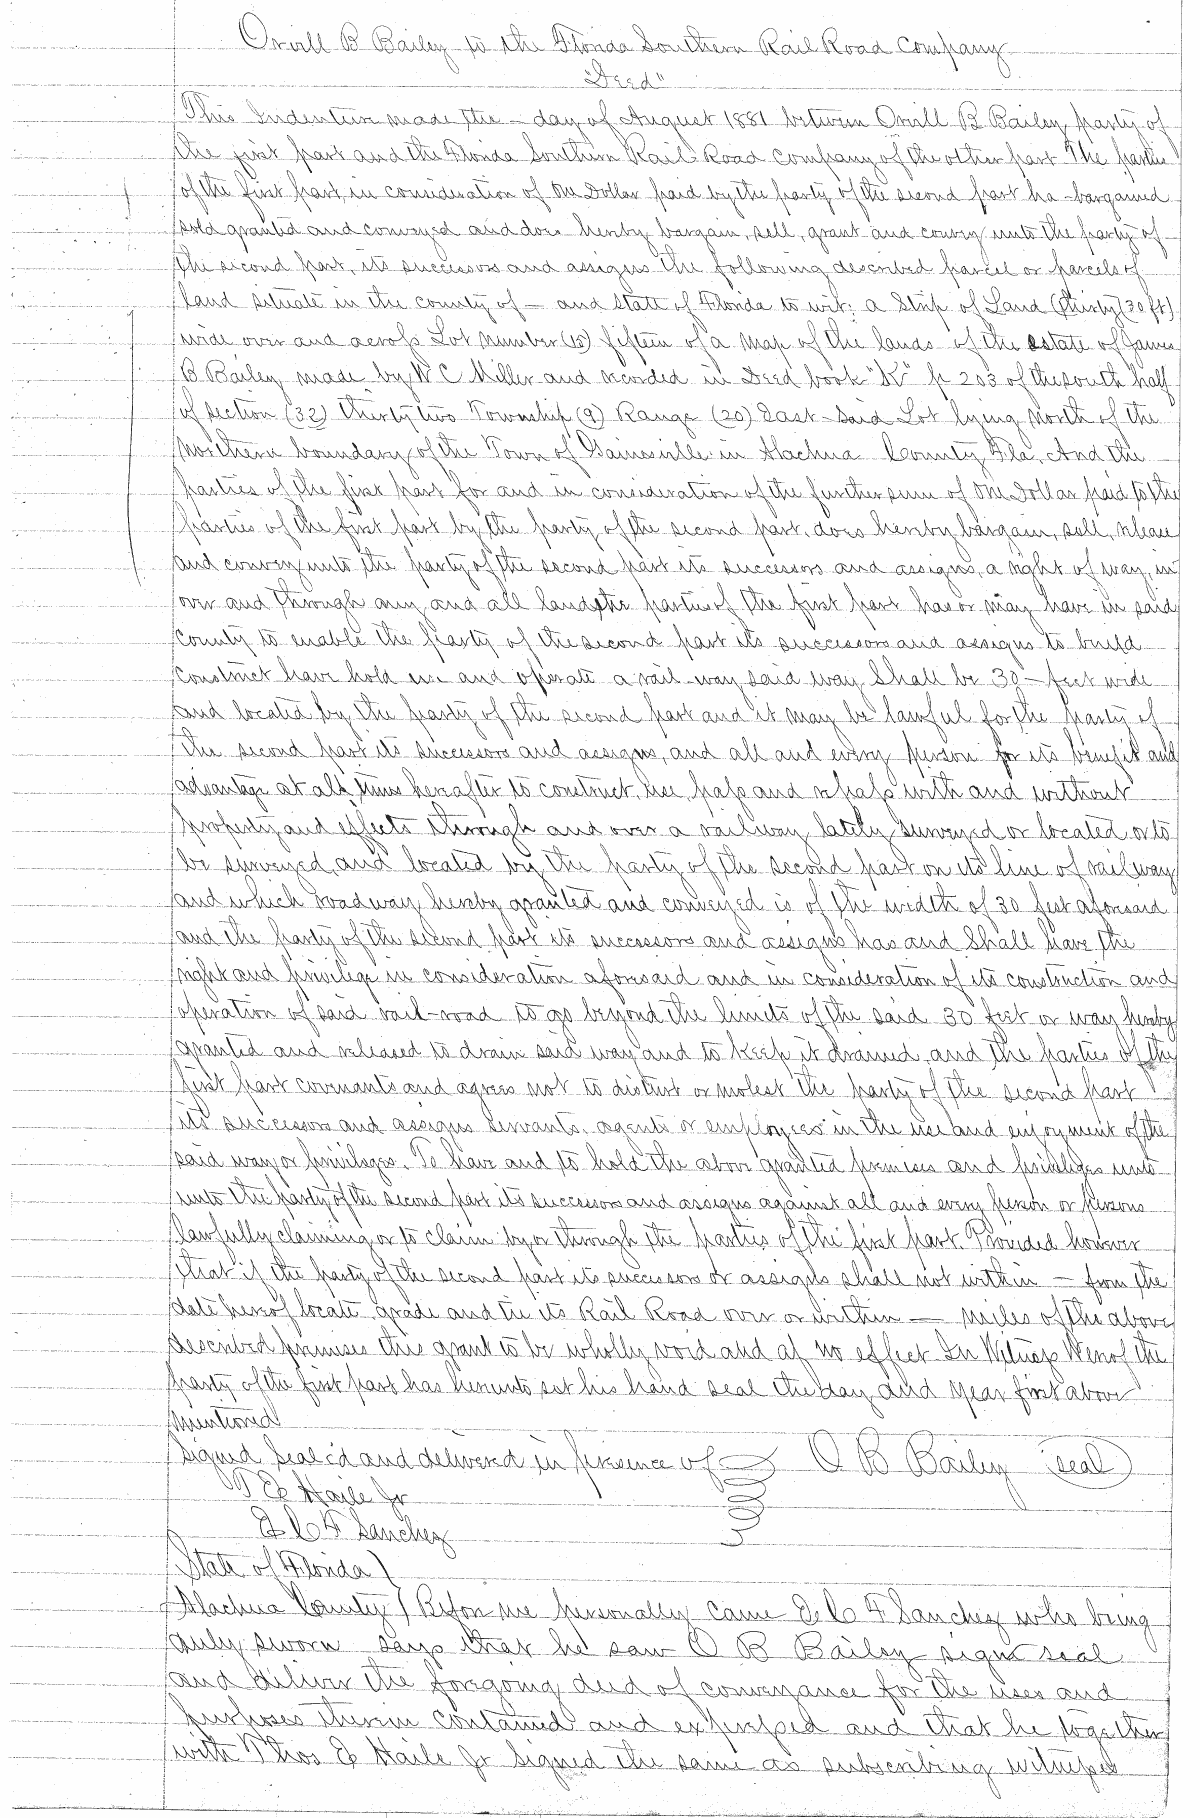 Orvill B Bailey to the Florida Southern Rail Road Company
"Deed"
This Indenture made the - day of August 1881 between Orvill B Bailey party of
the first part and the Florida Southern Rail Road Company of the other part The parties
of the first part, in consideration of One Dollar paid by the party of the second part ha - bargained
sold granted and conveyed and does hereby bargain, sell, grant and convey unto the party of
the second part, its successors and assigns the following described parcel or parcels of
land situate in the county of - and State of Florida to wit: a Strip of Land (thirty (30 ft)
wide over and across Lot number (15) fifteen of a map of the lands of the estate of James
B Bailey made by W C Miller and recorded in Deed book "K" p 203 of the south half
of section (32) thirty two Township (9) Range (20) East - said Lot lying North of the
northern boundary of the Town of Gainesville in Alachua County Fla. And the
parties of the first part for and in consideration of the further sum of One Dollar paid to the
parties of the first part by the party of the second part, does hereby bargain, sell, release
and convey unto the party of the second part its successors and assigns, a right of way, in
over and through any and all lands the parties of the first part has or may have in said
county to enable the Party of the second part its successors and assigns to build
construct have hold use and operate a rail-way said way Shall be 30 - feet wide
and located by the party of the second part and it may be lawful for the party of
the second part its successors and assigns, and all and every person for its benefit and
advantage at all times hereafter to construct, use, pass and repass with and without
property and effects through and over a railway lately surveyed or located or to
be surveyed and located by the party of the second part on its line of railway
and which roadway hereby granted and conveyed is of the width of 30 feet aforesaid
and the party of the second part its successors and assigns has and Shall have the
right and privilege in consideration aforesaid and in consideration of its construction and
operation of said rail-road to go beyond the limits of the said 30 feet or way hereby
granted and released to drain said way and to keep it drained, and the parties of the
first part covenants and agrees not to disturb or molest the party of the second part
its successors and assigns servants, agents or employees in the use and enjoyment of the
said way or privileges. To have and to hold the above granted premises and privileges unto
unto the party of the second part its successors and assigns against all and every person or persons
lawfully claiming or to claim by or through the parties of the first part. Provided however
that if the party of the second part its successors or assigns shall not within - from the
date hereof locate, grade and tie its Rail Road over or within - miles of the above
described premises this grant to be wholly void and of no effect In Witness Wereof the
party of the first part has hereunto set his hand seal the day and year first above
mentioned
signed seal'd and delivered in presence of O B Bailey (seal)
T E Haile Jr
E C F Sanchez
State of Florida )
Alachua County ) Before me personally came E C F Sanchez who being
duly sworn says that he saw O B Bailey sign seal
and deliver the foregoing deed of conveyance for the uses and
purposes therein contained and expressed and that he together
with Thos E Haile Jr signed the same as subscribing witnesses